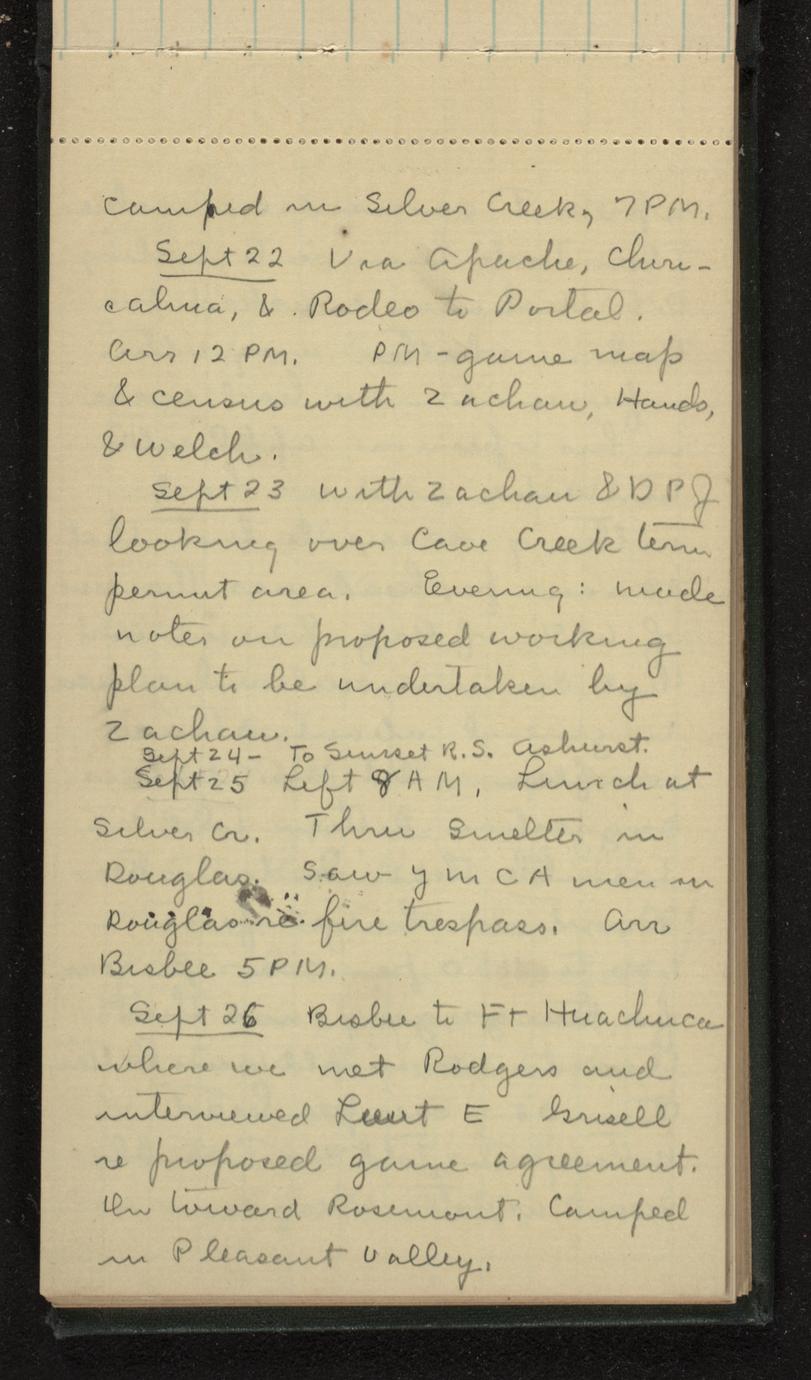 camped in Silver Creek, 7 PM.
Sept 22 Via Apache, Chiri-
cahua, & Rodeo to Portal.
Arr 12 PM. PM - game map
& census with Zachau, Hands,
& Welch.
Sept 23 with Zachau & D P J
looking over Cave Creek term
permit area. Evening: made
notes on proposed working
plan to be undertaken by
Zachau.
Sept 24 - To Sunset R.S. Ashurst.
Sept 25 Left 8 AM, Lunch at
Silver Cr. Thru Smelter in
Douglas. Saw YMCA men in
Douglas re fire trespass. Arr
Bisbee 5 PM.
Sept 26 Bisbee to Ft Huachuca
where we met Rodgers and
interviewed Lieut E Grisell
re proposed game agreement.
On toward Rosemont. Camped
in Pleasant Valley.